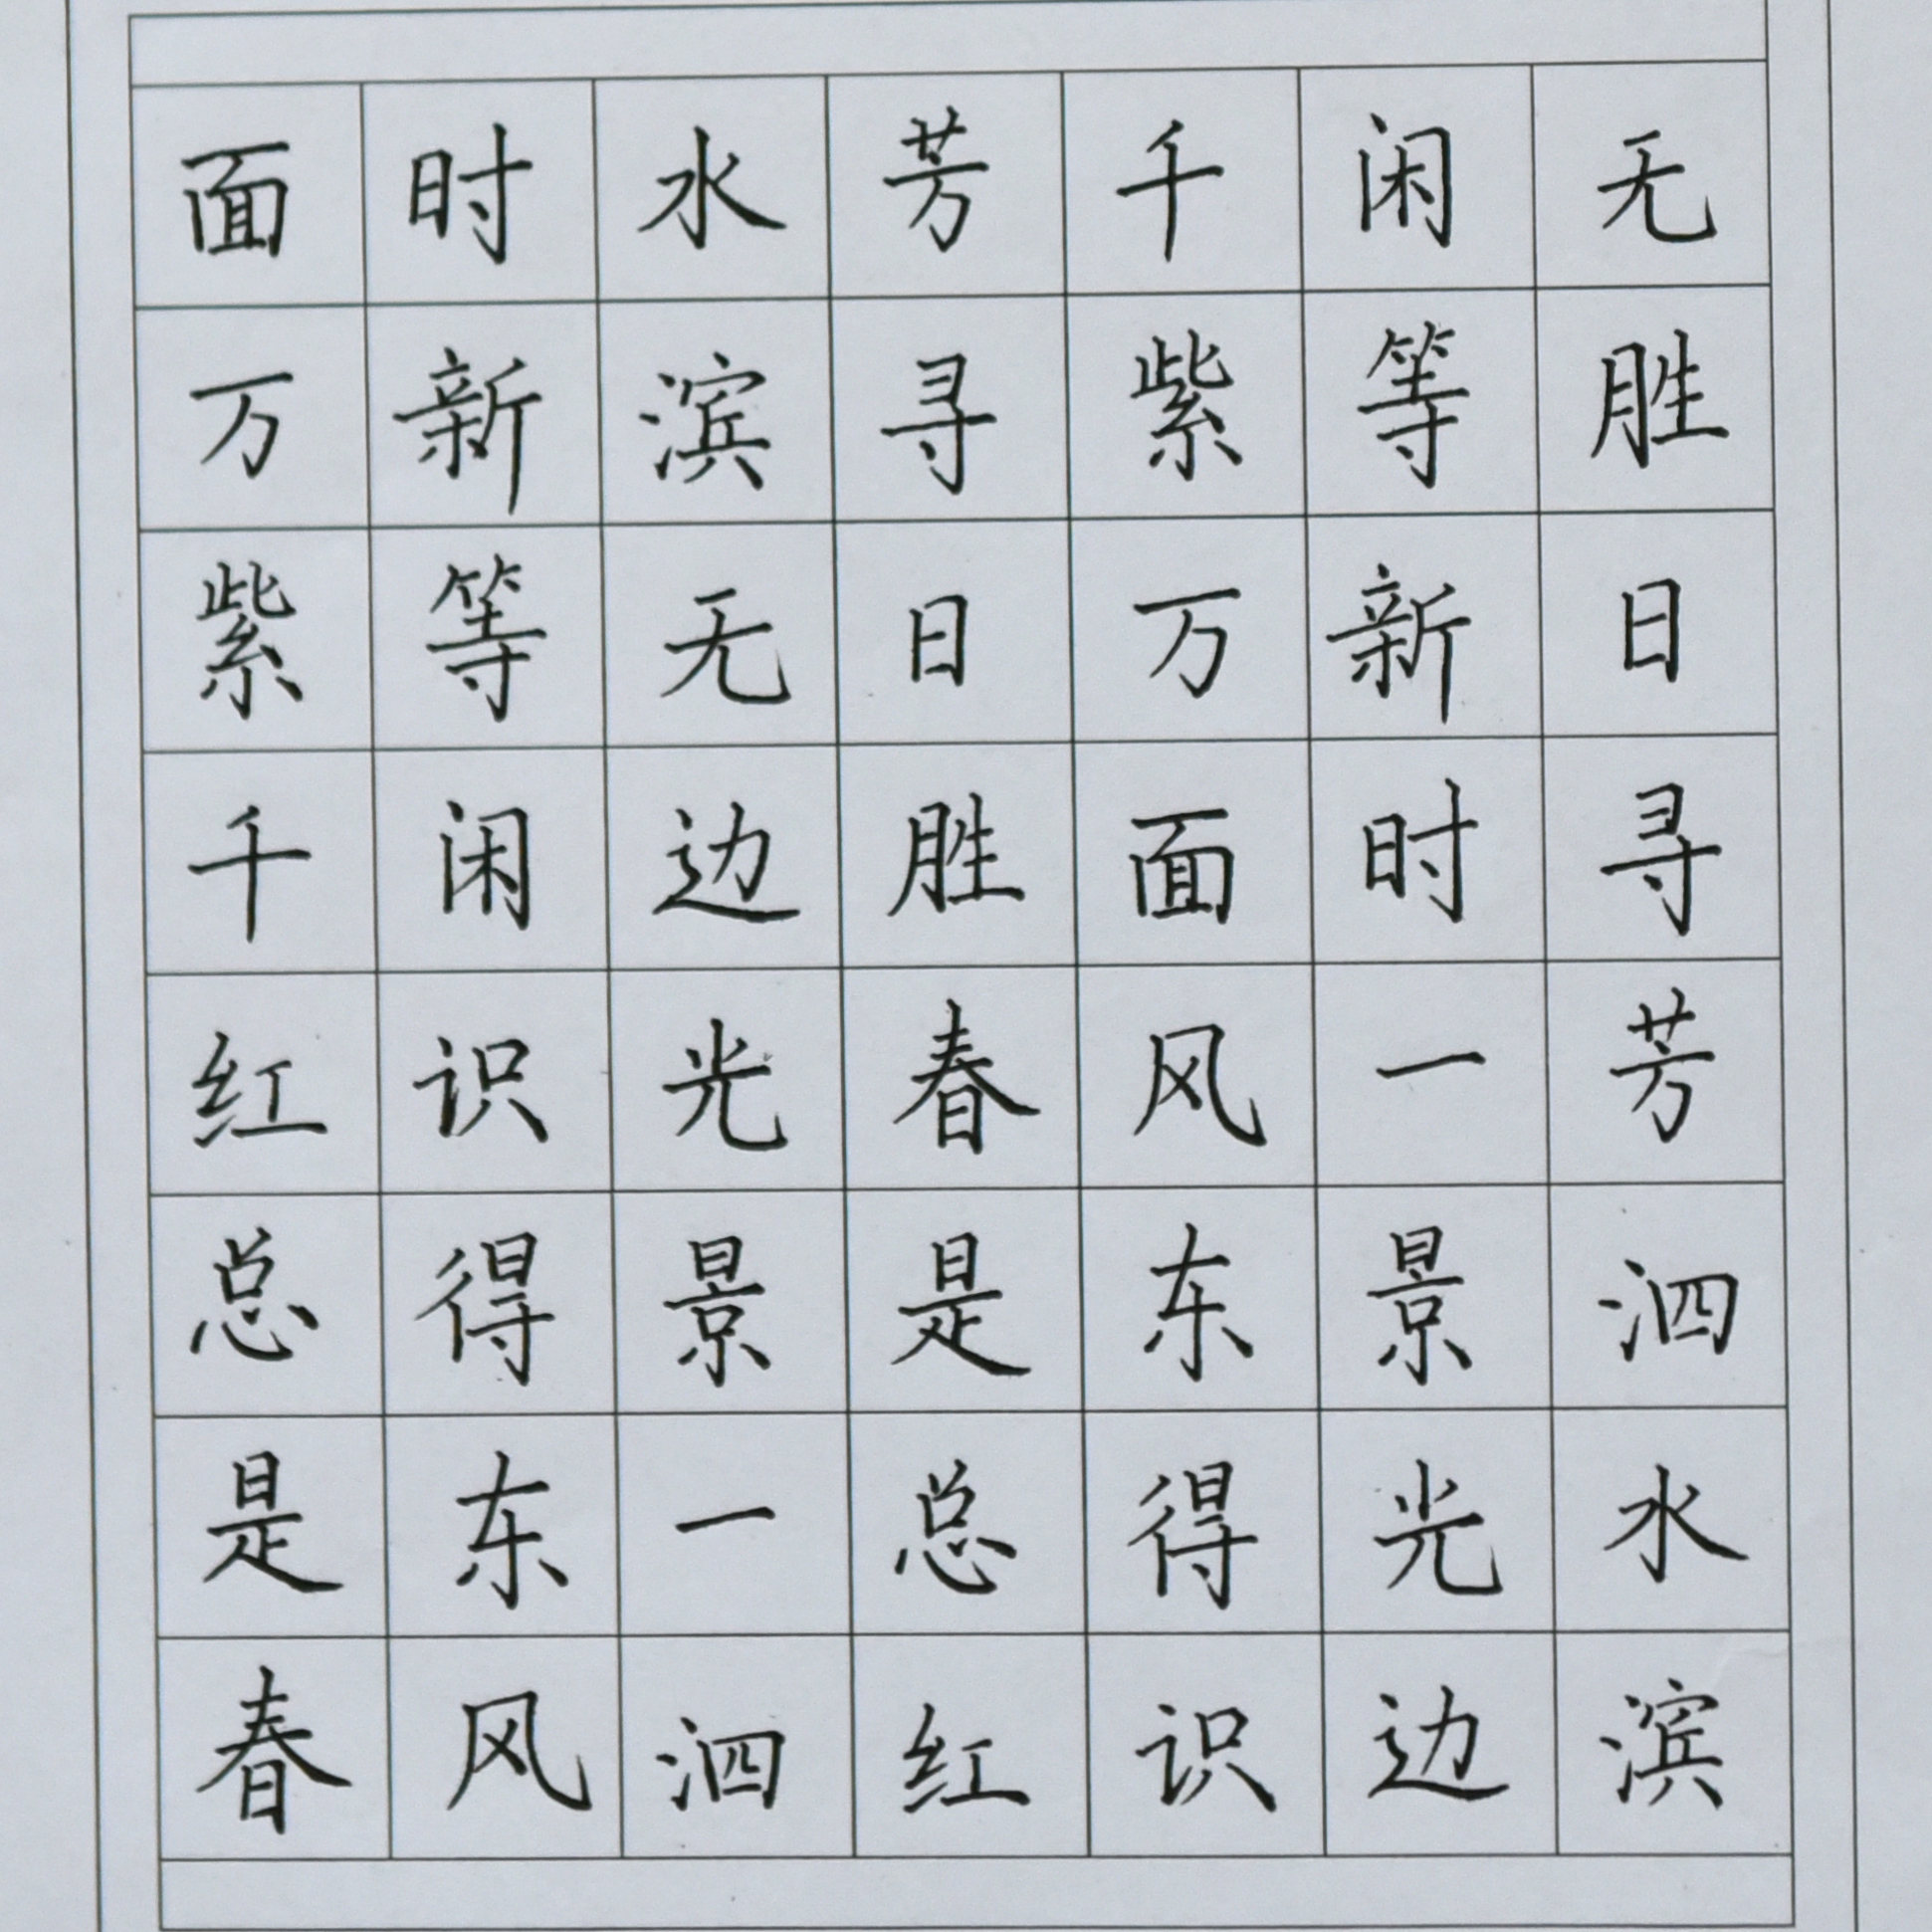 无胜日寻芳泗水滨
闲等新时一景光边
千紫万面风东得识
芳寻日胜春是总红
水滨无边光景一泗
时新等闲识得东风
面万紫千红总是春